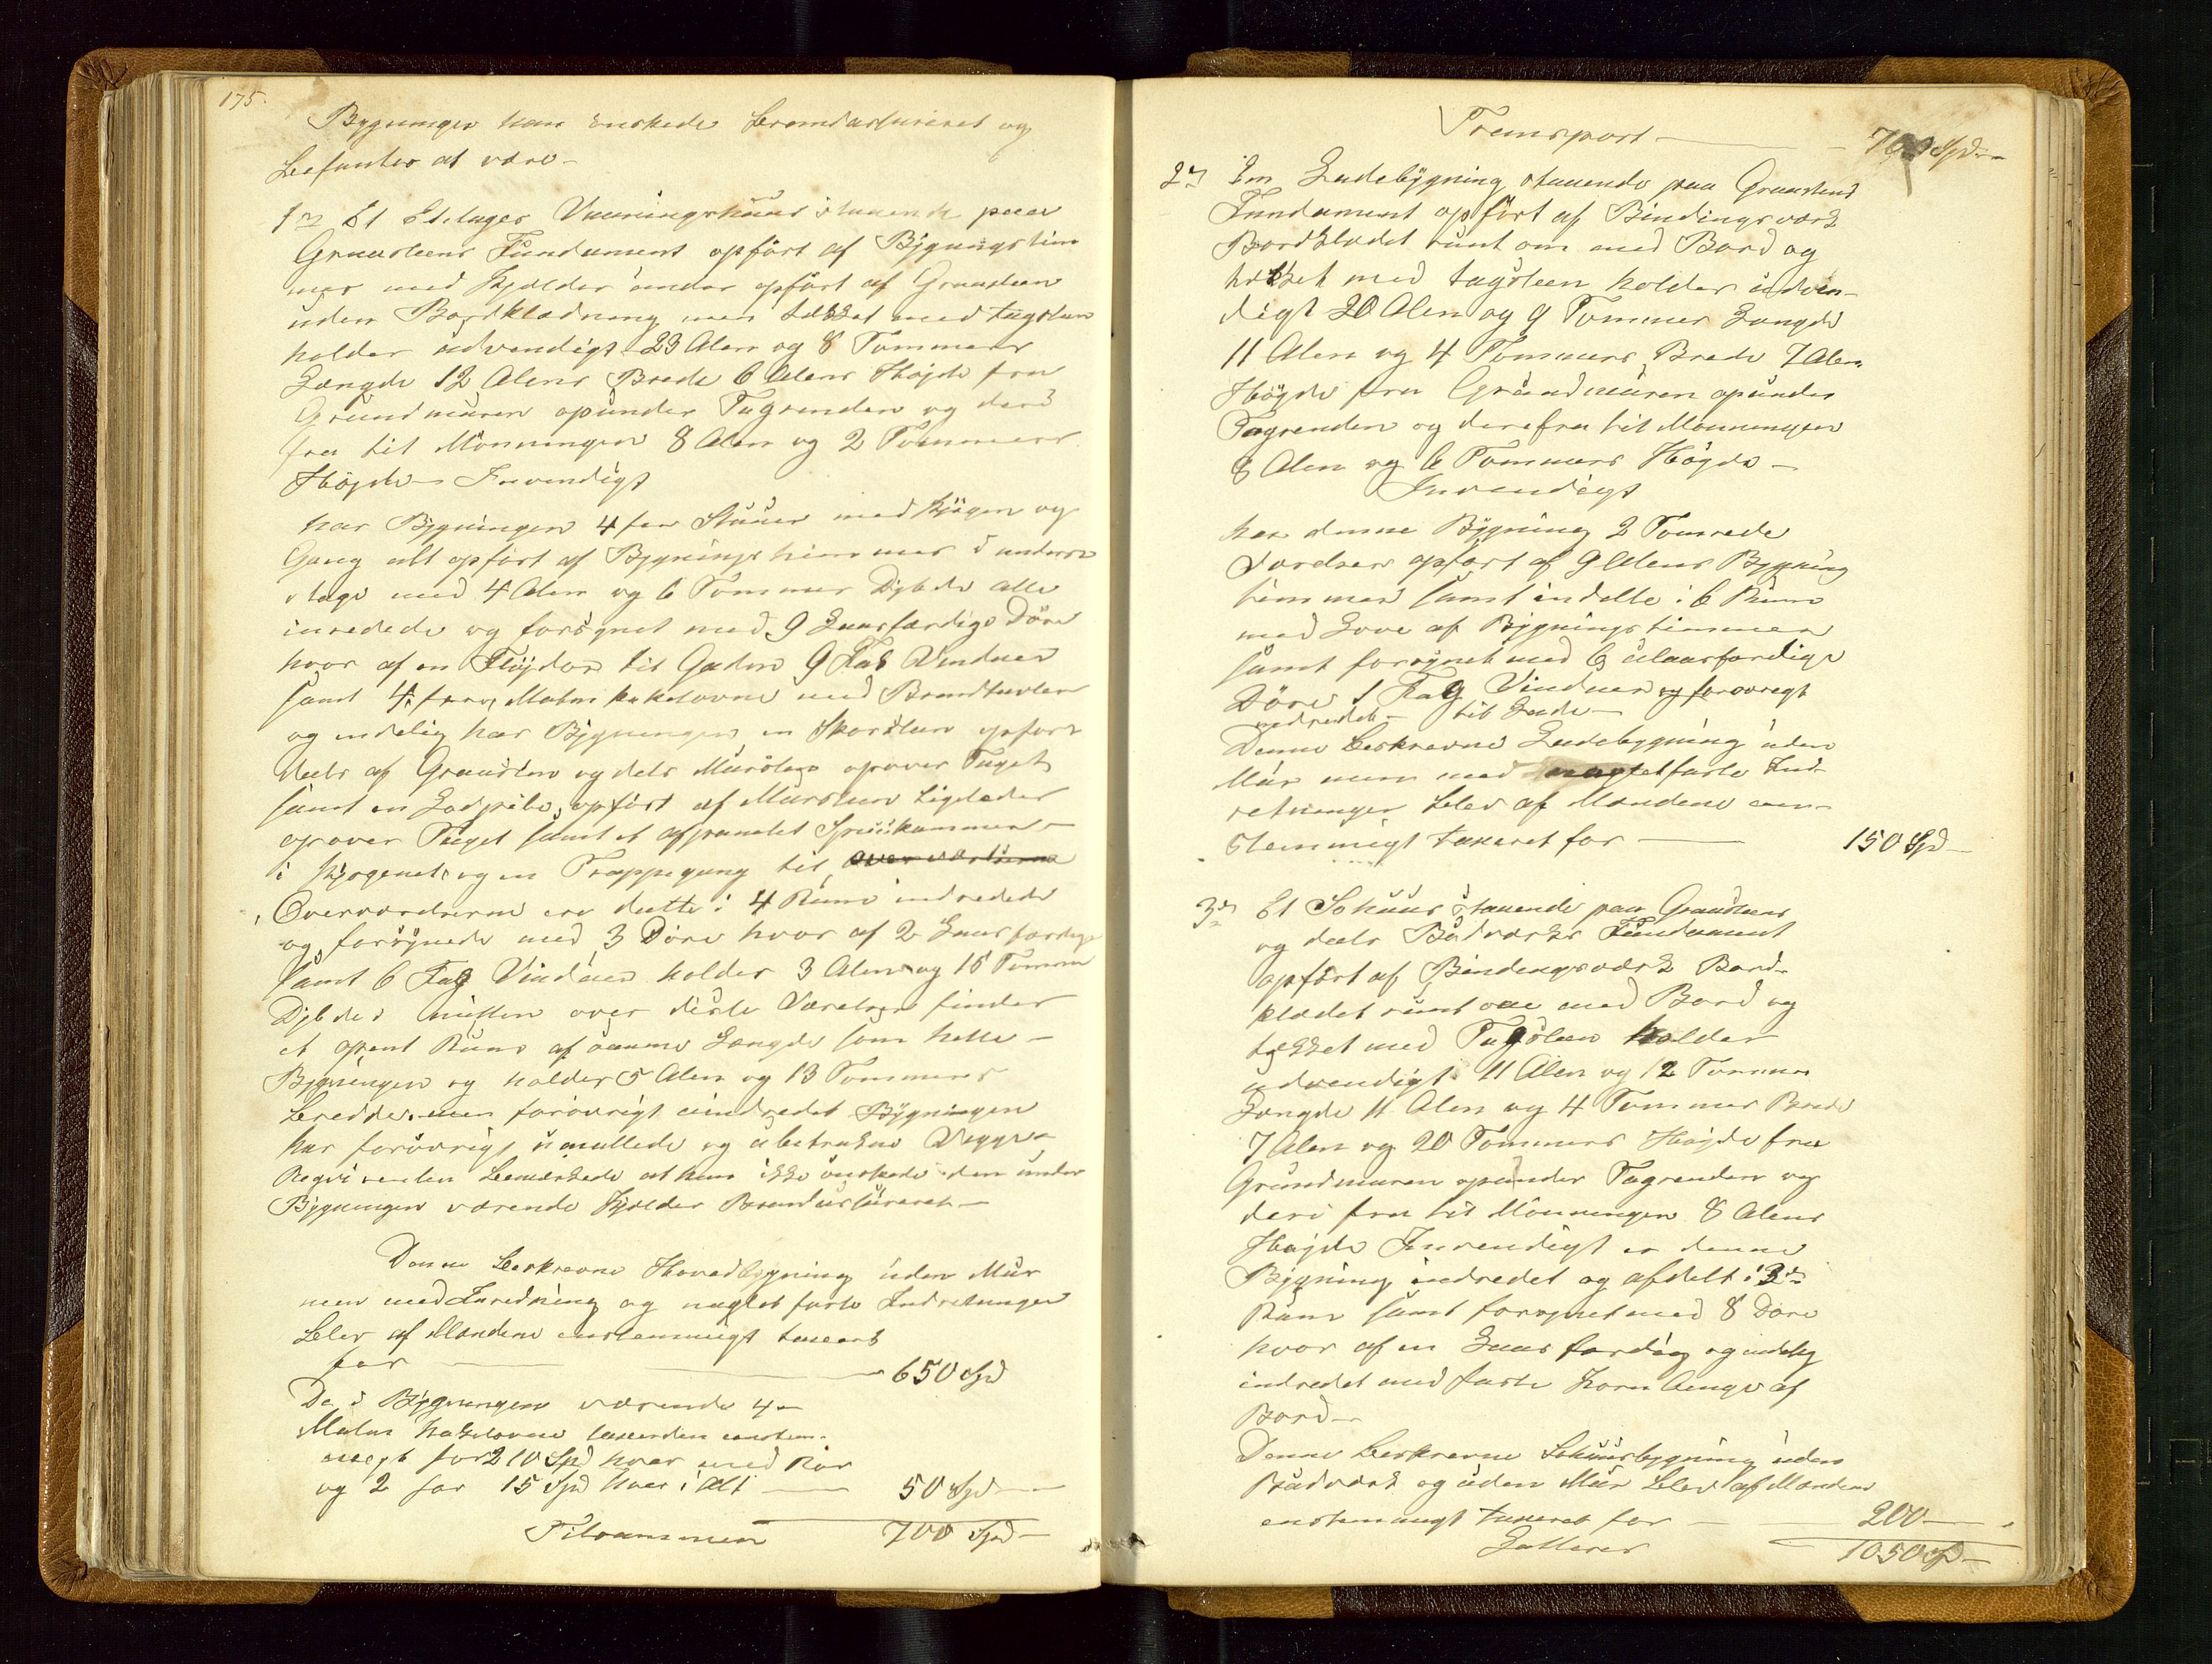 175.
Bygninger han önskede brandassureret og
befantes at være -
1= Et Etetages Vaaningshuus staaende paa
Graasteens Fundament opfört af Bygningstim
mer med Kjelder under opfört af Graasteen
uden Bordklædning men tækket med tagsteen
holder udvendigt 23 Alen og 8 Tommers
Længde 12 Alens Brede 6 Alens Höjde fra
Grundmuren opunder Tagrenden og der¨
fra til Mönningen 8 Alen og 2 Tommers
Höjde - Invendigt
har Bygningen 4 fer Stuuer med Kjögen og
Gang alt opfört af Bygningstimmer i underste
etage med 4 Alen og 6 Tommer Dybde alle
inredede og forsynet med 9 Laasfærdige Döre
hvor af en Flöjdör til Gaden 9 Fag Vinduer
samt 4 Malm kakelovne med Brandtavler
og endelig har Bygningen en Skorsteen opfört
deels af Graasten og dels Mursteen opover Taget
samt en Lodpibe opfört af Mursteen ligeleder
opover Taget samt et afpanelet Spiiskammer
i Kjögenet og en Trappegang til
Overværelserne ere dette i 4 Rum indredede
og forsynede med 3 Döre hvor af 2 Laasfærdige
samt 6 Fag Vinduer holder 3 Alen og 15 Tomme
Dybde i mitten over diste Værelser finder
et opent Rum af samme Længde som helle -
Bygningen og holder 5 Alen og 13 Tommers
bredde men foröv­rigt uindredet Bygningen
har forövrigt umallede og ubetrukne Vegge -
Reqvirenten bemærkede at han ikke önskede den under
Bygningen værende Kjelder Brandassureret -
Denne beskrevne Hovedbygning uden Mur
men med Inredning og naglet faste Indretninger
blev af Mændene enstemmigt taxeret
for - 650 Spd
De i Bygningen værende 4 -
Malm kakelovne taxerden enstem-
megt for 2 10 Spd hver med Rör
og 2 for 15 Spd hver i Alt - 50 Spd -
Tilsammen 700 Spd -
Transport - 700 Spd -
2= En Ladebygning staaende paa Graasteens
Fundament opfört af Bindingsværk
Bordklædet runt om med Bord og
tækket med tagsteen holder udven-
digt 20 Alen og 9 Tommer Længde
11 Alen og 4 Tommers Brede 7 Alens
Höyde fra Grundmuren opunder
Tagrenden og derefra til Mönningen
8 Alen og 6 Tommers Höyde -
Invendigt
har denne Bygning 2 Tomrede
Værelser opfört af 9 Alens Bygning
timmer samt indelte i 6 Rum
med Love af Bygningstimmer
samt forsynet med 6 ulaasfærdige
Döre 1 Fag Vinduer og forövrigt
indredet - til Lade -
Denne beskrevne Ladebygning uden
Mur men med nagletfaste Ind-
retninger blev af Mændene een-
stemmigt taxeret for - 150 Spd -
3= Et Söhuus staaende paa Graasteens
og deels Budværks Fundament
opfört af Bindingsværk Bord-
klædet runt om med Bord og
tækket med Tagsteen holder
udvendigt 11 Alen og 12 Tommer
Længde 11 Alen og 4 Tommer Brede
7 Alen og 20 Tommers Höjde fra
Grundmuren opunder Tagrenden og
deri fra til Mönningen 8 Alens
Höjde Invendigt er denne
Bygning indredet og afdelt i 3de
Rum samt forsynet med 8 Döre
hvor af en Laasfærdig og endelig
indredet med faste Korn benge af
Bord -
Denne beskrevne Söhuusbygning uden
Budværk og uden Mur blev af Mændene
enstemmigt taxeret for - 200 -
1050 Spd -